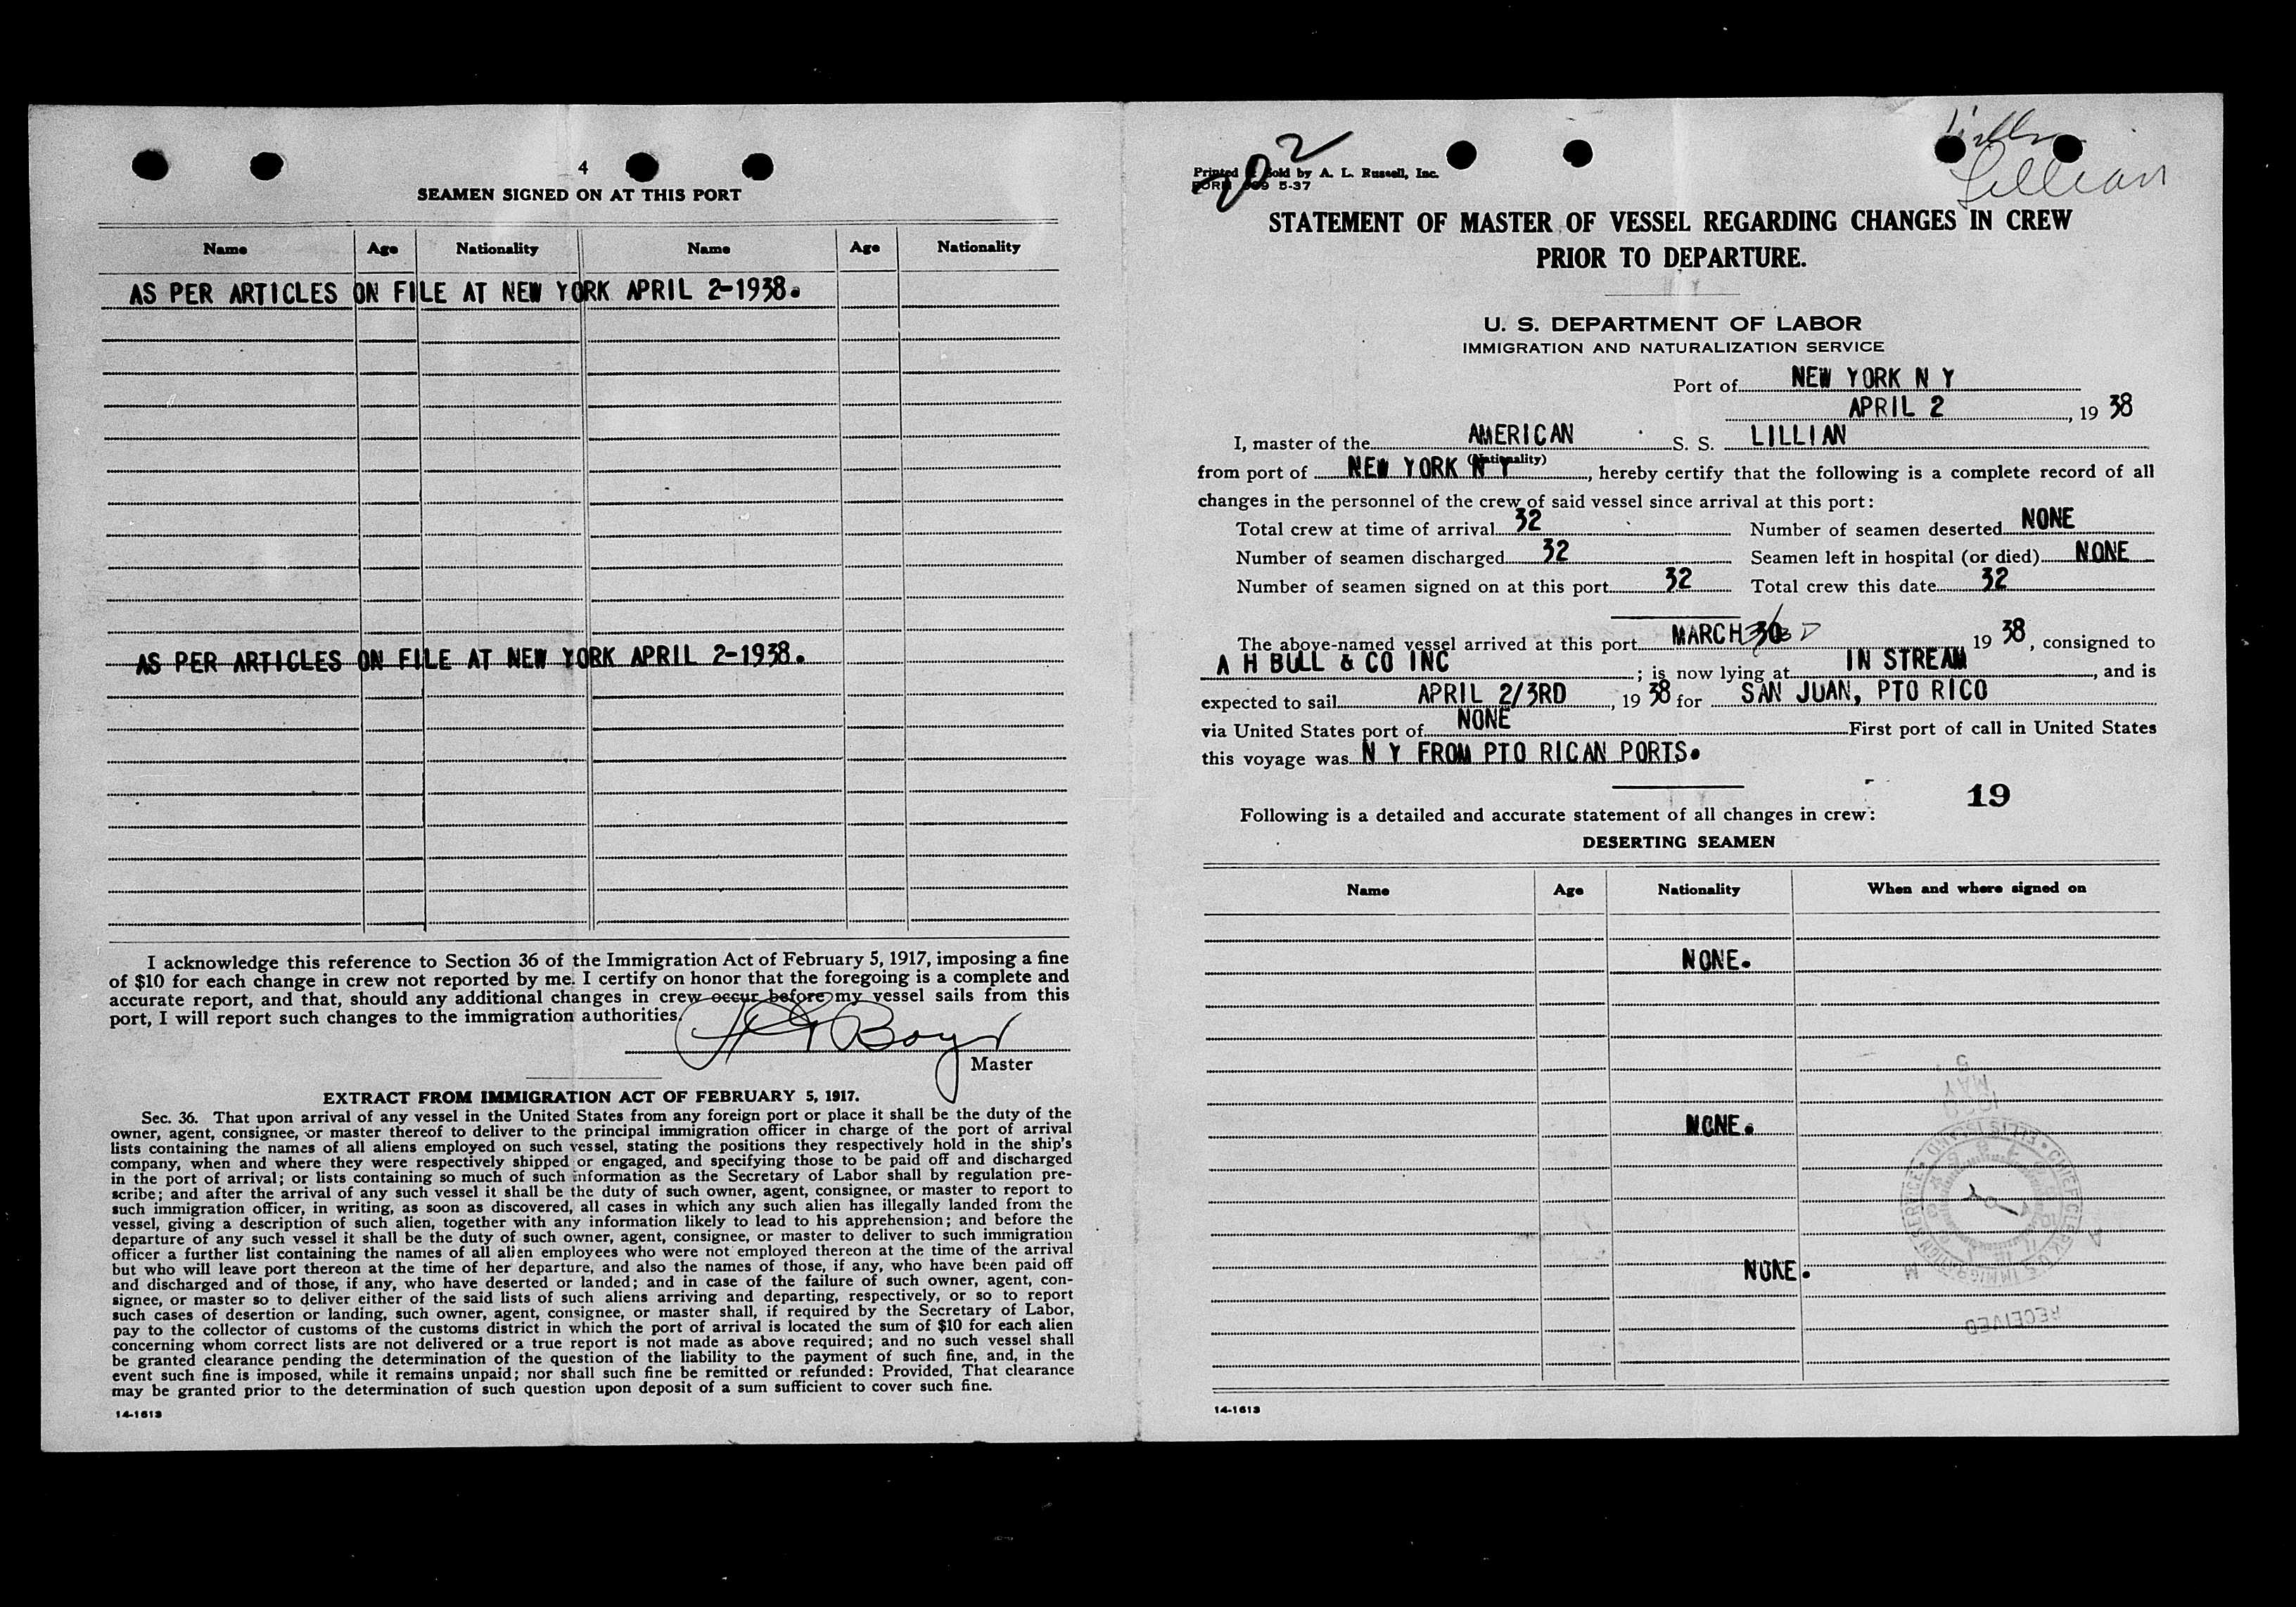 4
SEAMEN SIGNED ON AT THIS PORT
Name Age Nationality Name Age Nationality
AS PER ARTICLES ON FILE AT NEW YORK APRIL 2-1938.
AS PER ARTICLES ON FILE AT NEW YORK APRIL 2-1938.
I acknowledge this reference to Section 36 of the Immigration Act of February 5, 1917, imposing a fine
of $10 for each change in crew not reported by me. I certify on honor that the foregoing is a complete and
accurate report, and that, should any additional changes in crew occur before my vessel sails from this
port, I will report such changes to the immigration authorities.
Master
EXTRACT FROM IMMIGRATION ACT OF FEBRUARY 5, 1917.
Sec. 36. That upon arrival of any vessel in the United States from any foreign port or place it shall be the duty of the
owner, agent, consignee, or master thereof to deliver to the principal immigration officer in charge of the port of arrival
lists containing the names of all aliens employed on such vessel, stating the positions they respectively hold in the ship's
company, when and where they were respectively shipped or engaged, and specifying those to be paid off and discharged
in the port of arrival; or lists containing so much of such information as the Secretary of Labor shall by regulation pre-
scribe; and after the arrival of any such vessel it shall be the duty of such owner, agent, consignee, or master to report to
such immigration officer, in writing, as soon as discovered, all cases in which any such alien has illegally landed from the
vessel, giving a description of such alien, together with any information likely to lead to his apprehension; and before the
departure of any such vessel it shall be the duty of such owner, agent, consignee, or master to deliver to such immigration
officer a further list containing the names of all alien employees who were not employed thereon at the time of the arrival
but who will leave port thereon at the time of her departure, and also the names of those, if any, who have been paid off
and discharged and of those, if any, who have deserted or landed; and in case of the failure of such owner, agent, con-
signee, or master so to deliver either of the said lists of such aliens arriving and departing, respectively, or so to report
such cases of desertion or landing, such owner, agent, consignee, or master shall, if required by the Secretary of Labor,
pay to the collector of customs of the customs district in which the port of arrival is located the sum of $10 for each alien
concerning whom correct lists are not delivered or a true report is not made as above required; and no such vessel shall
be granted clearance pending the determination of the question of the liability to the payment of such fine, and, in the
event such fine is imposed, while it remains unpaid; nor shall such fine be remitted or refunded: Provided, That clearance
may be granted prior to the determination of such question upon deposit of a sum sufficient to cover such fine.
14-1613
2
20
Lillian
Printed & Sold by A. L. Russell, Inc.
FORM 5-37
STATEMENT OF MASTER OF VESSEL REGARDING CHANGES IN CREW
PRIOR TO DEPARTURE.
U. S. DEPARTMENT OF LABOR
IMMIGRATION AND NATURALIZATION SERVICE
Port of NEW YORK N Y
APRIL 2, 19 38
I, master of the AMERICAN S. S. LILLIAN
(Nationality)
from port of NEW YORK N Y, hereby certify that the following is a complete record of all
changes in the personnel of the crew of said vessel since arrival at this port:
Total crew at time of arrival 32 Number of seamen deserted NONE
Number of seamen discharged 32 Seamen left in hospital (or died) NONE
Number of seamen signed on at this port 32 Total crew this date 32
The above-named vessel arrived at this port MARCH 30 19 38, consigned to
A H BULL & CO INC ; is now lying at IN STREAM, and is
expected to sail APRIL 2/3RD, 19 38 for SAN JUAN, PTO RICO
via United States port of NONE First port of call in United States
this voyage was N Y FROM PTO RICAN PORTS.
19
Following is a detailed and accurate statement of all changes in crew:
DESERTING SEAMEN
Name Age Nationality When and where signed on
NONE.
NONE.
NONE.
MAY 5
CHIEF CLERK U.S. IMMIGRATION SERVICE • ELLIS ISLAND •
RECEIVED
14-1613